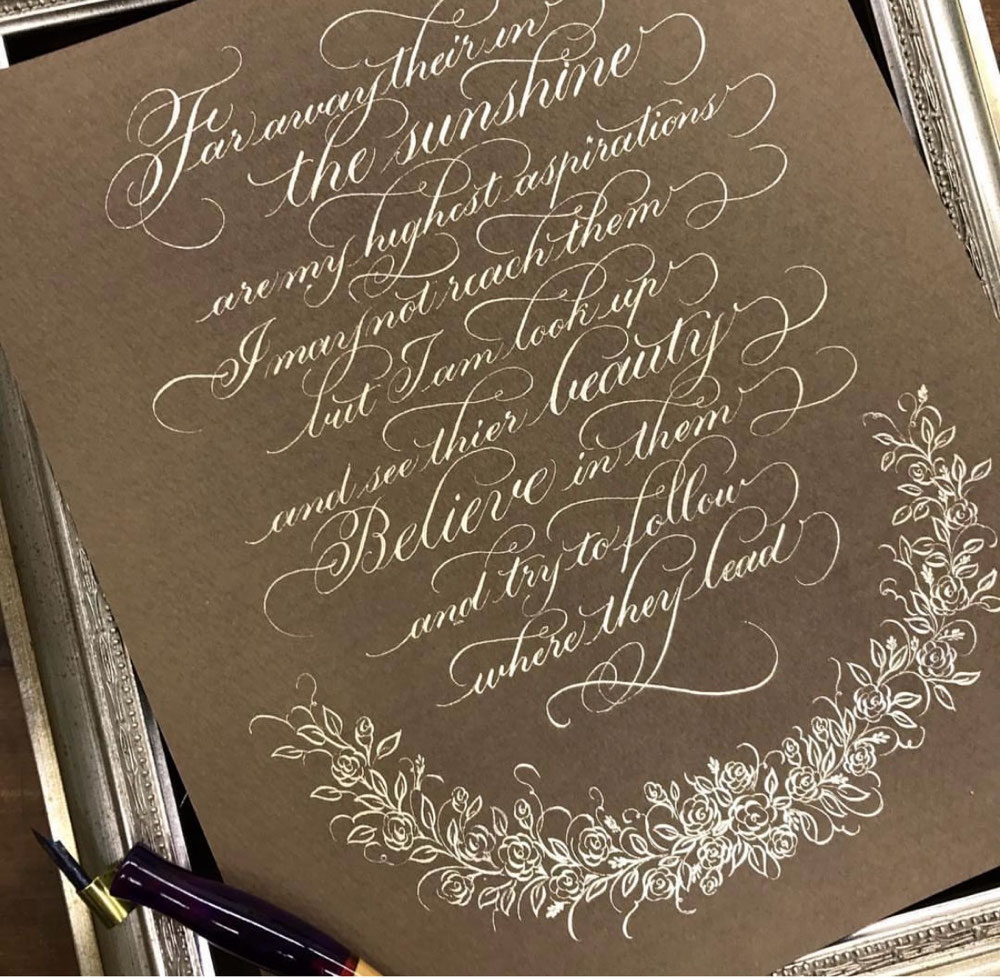 Far away their in
the sunshine
are my highest aspirations
I may not reach them
but I am look up
and see thier beauty
Believe in them
and try to follow
where they lead